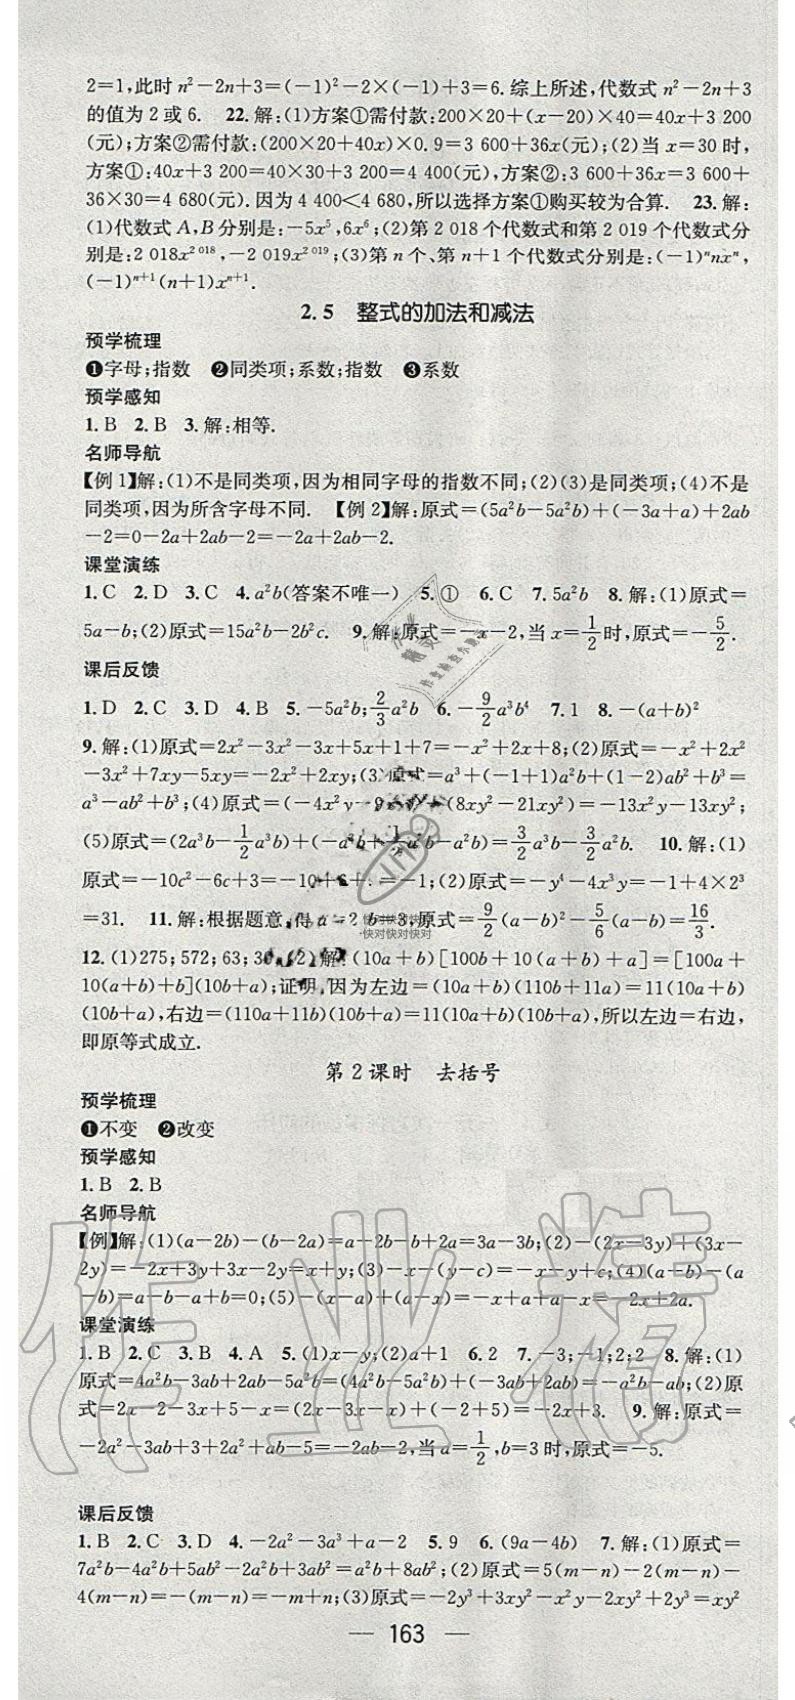 2=1,此时 n²-2n+3=(-1)²-2×(-1)+3=6. 综上所述,代数式 n²-2n+3
的值为 2 或 6. 22. 解:(1)方案①需付款:200×20+(x-20)×40=40x+3 200
(元);方案②需付款:(200×20+40x)×0.9=3 600+36x(元);(2)当 x=30 时,
方案①:40x+3 200=40×30+3 200=4 400(元),方案②:3 600+36x=3 600+
36×30=4 680(元). 因为 4 400<4 680,所以选择方案①购买较为合算. 23. 解:
(1)代数式 A,B 分别是:-5x⁵,6x⁶;(2)第 2 018 个代数式和第 2 019 个代数式分
别是:2 018x²⁰¹⁸,-2 019x²⁰¹⁹;(3)第 n 个、第 n+1 个代数式分别是:(-1)ⁿnxⁿ,
(-1)ⁿ⁺¹(n+1)xⁿ⁺¹.
2.5 整式的加法和减法
预学梳理
❶字母;指数 ❷同类项;系数;指数 ❸系数
预学感知
1. B 2. B 3. 解:相等.
名师导航
【例 1】解:(1)不是同类项,因为相同字母的指数不同;(2)(3)是同类项;(4)不是
同类项,因为所含字母不同. 【例 2】解:原式=(5a²b-5a²b)+(-3a+a)+2ab
-2=0-2a+2ab-2=-2a+2ab-2.
课堂演练
1. C 2. D 3. C 4. a²b(答案不唯一) 5. ① 6. C 7. 5a²b 8. 解:(1)原式=
5a-b;(2)原式=15a²b-2b²c. 9. 解:原式=-x-2,当 x=1/2时,原式=-5/2.
课后反馈
1. D 2. C 3. D 4. B 5. -5a²b;2/3a²b 6. -9/2a³b⁴ 7. 1 8. -(a+b)²
9. 解:(1)原式=2x²-3x²-3x+5x+1+7=-x²+2x+8;(2)原式=-x²+2x²
-3x²+7xy-5xy=-2x²+2xy;(3)原式=a³+(-1+1)a²b+(1-2)ab²+b³=
a³-ab²+b³;(4)原式=(-4x²y-9x²y)+(8xy²-21xy²)=-13x²y-13xy²;
(5)原式=(2a³b-1/2a³b)+(-a²b+1/2a²b-a²b)=3/2a³b-3/2a²b. 10. 解:(1)
原式=-10c²-6c+3=-10+6+3=-1;(2)原式=-y⁴-4x³y=-1+4×2³
=31. 11. 解:根据题意,得 a=2,b=3,原式=9/2(a-b)²-5/6(a-b)=16/3.
12. (1)275;572;63;36 (2)解:(10a+b)[100b+10(a+b)+a]=[100a+
10(a+b)+b](10b+a);证明,因为左边=(10a+b)(110b+11a)=11(10a+b)
(10b+a),右边=(110a+11b)(10b+a)=11(10a+b)(10b+a),所以左边=右边,
即原等式成立.
第 2 课时 去括号
预学梳理
❶不变 ❷改变
预学感知
1. B 2. B
名师导航
【例】解:(1)(a-2b)-(b-2a)=a-2b-b+2a=3a-3b;(2)-(2x-3y)+(3x-
2y)=-2x+3y+3x-2y=x+y;(3)-x-(y-c)=-x-y+c;(4)(a-b)-(a
-b)=a-b-a+b=0;(5)-(x-a)+(a-x)=-x+a+a-x=-2x+2a.
课堂演练
1. B 2. C 3. B 4. A 5. (1)x-y;(2)a+1 6. 2 7. -3;-1;2;2 8. 解:(1)
原式=4a²b-3ab+2ab-5a²b=(4a²b-5a²b)+(-3ab+2ab)=-a²b-ab;(2)原
式=2x-2-3x+5-x=(2x-3x-x)+(-2+5)=-2x+3. 9. 解:原式=
-2a²-3ab+3+2a²+ab-5=-2ab-2,当 a=1/2,b=3 时,原式=-5.
课后反馈
1. B 2. C 3. D 4. -2a²-3a³+a-2 5. 9 6. (9a-4b) 7. 解:(1)原式=
7a²b-4a²b+5ab²-2a²b+3ab²=a²b+8ab²;(2)原式=5(m-n)-2(m-n)-
4(m-n)=-(m-n)=-m+n;(3)原式=-2y³+3xy²-x²y-2xy²+2y³=xy²
— 163 —
作业精
快对快对快对
快对快对快对